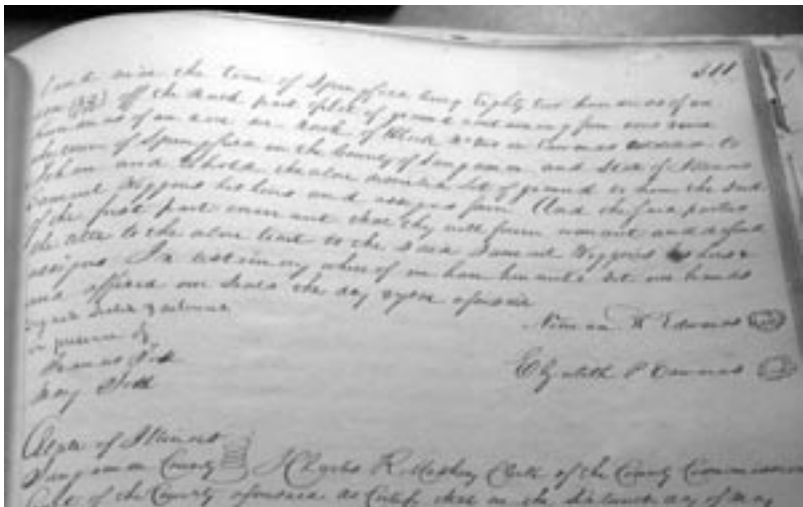 511
and in the town of Springfield being Eighty two hundreds of an
acre off the North part of lot of ground containing
hundreds of an acre North of Block in
the town of Springfield in the County of Sangamon and State of Illinois
To have and to hold the above lot of ground to him the said
Samuel Wiggins his heirs and assigns And the said parties
of the first part covenant that they will forever warrant and defend
the title to the above to the said Samuel Wiggins his heirs &
assigns In testimony whereof we have hereunto set our hands
and affixed our seals the day & year aforesaid
Signed Sealed & delivered
in presence of
Ninian W Edwards
Frances Todd
Elizabeth P Edwards
Mary Todd
State of Illinois
Sangamon County I Charles R Matheny Clerk of the County Commissioners
Court of the County aforesaid do Certify that on the day of May